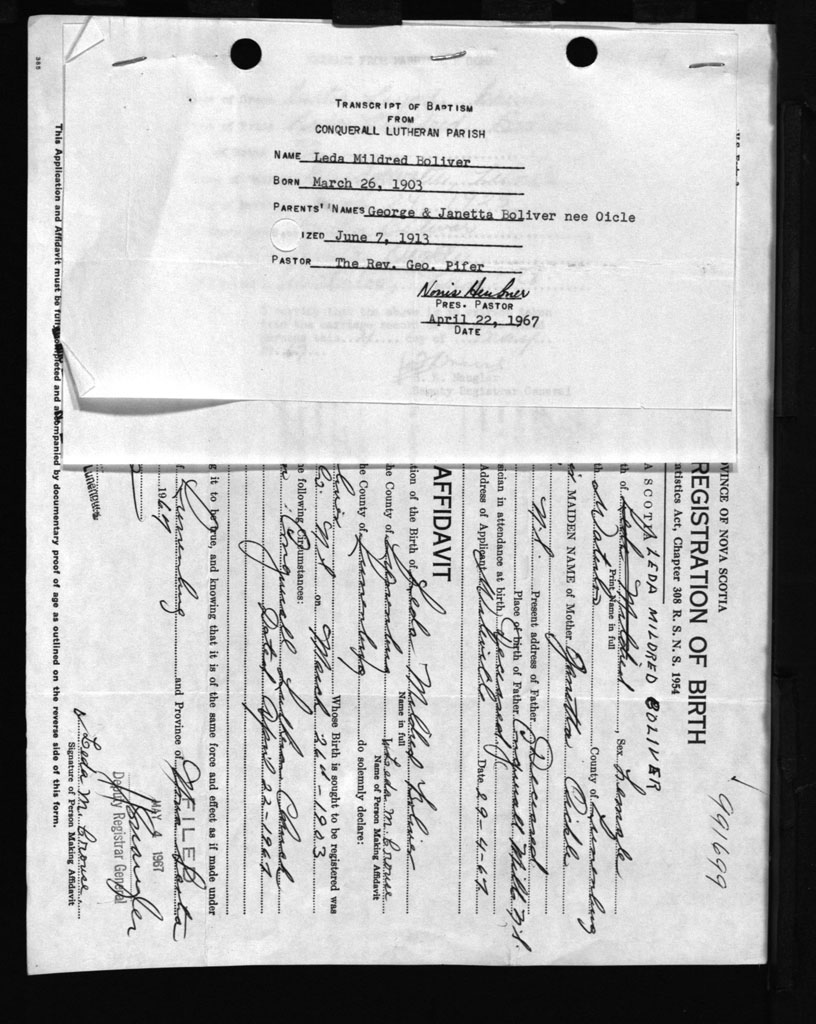 TRANSCRIPT OF BAPTISM
FROM
CONQUERALL LUTHERAN PARISH
NAME Leda Mildred Boliver
BORN March 26, 1903
PARENTS' NAMES George & Janetta Boliver nee Oicle
IZED June 7, 1913
PASTOR The Rev. Geo. Pifer
PRES. PASTOR
April 22, 1967
DATE
991699
VINCE OF NOVA SCOTIA
REGISTRATION OF BIRTH
atistics Act, Chapter 308 R. S. N. S. 1954
A SCOTIA LEDA MILDRED BOLIVER
th of Leda Mildred, Sex Female
Print Name in full
th County of Lunenburg
MAIDEN NAME of Mother Janetta Oickle
N.S. Present address of Father Deceased
Place of birth of Father Conquerall Mills N.S.
sician in attendance at birth Deceased
Address of Applicant Date 29-4-67
AFFIDAVIT
tion of the Birth of Leda Mildred Boliver
Name in full
he County of Lunenburg I, Leda M. Browne
Name of Person Making Affidavit
he County of Lunenburg do solemnly declare:
Whose Birth is sought to be registered was
Co. N.S. on March 26th-1903
e following Circumstances:
Conquerall Lutheran Church
Dated April 22-1967
g it to be true, and knowing that it is of the same force and effect as if made under
f Lunenburg and Province of Nova Scotia
1967
FILED
MAY 4 1967
Deputy Registrar General
Lunenburg
Leda M. Browne
Signature of Person Making Affidavit
This Application and Affidavit must be fully completed and accompanied by documentary proof of age as outlined on the reverse side of this form.
385